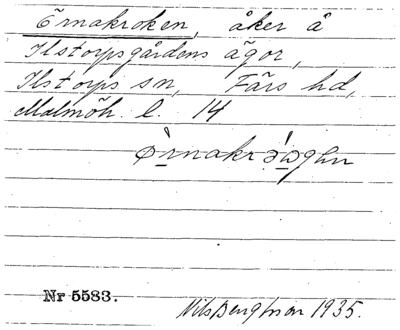 Örnakroken, åker å
Ilstorpsgårdens ägor,
Ilstorps sn, Färs hd,
Malmöh. l. 14
Nr 5583.
Nils Bengtson 1935.